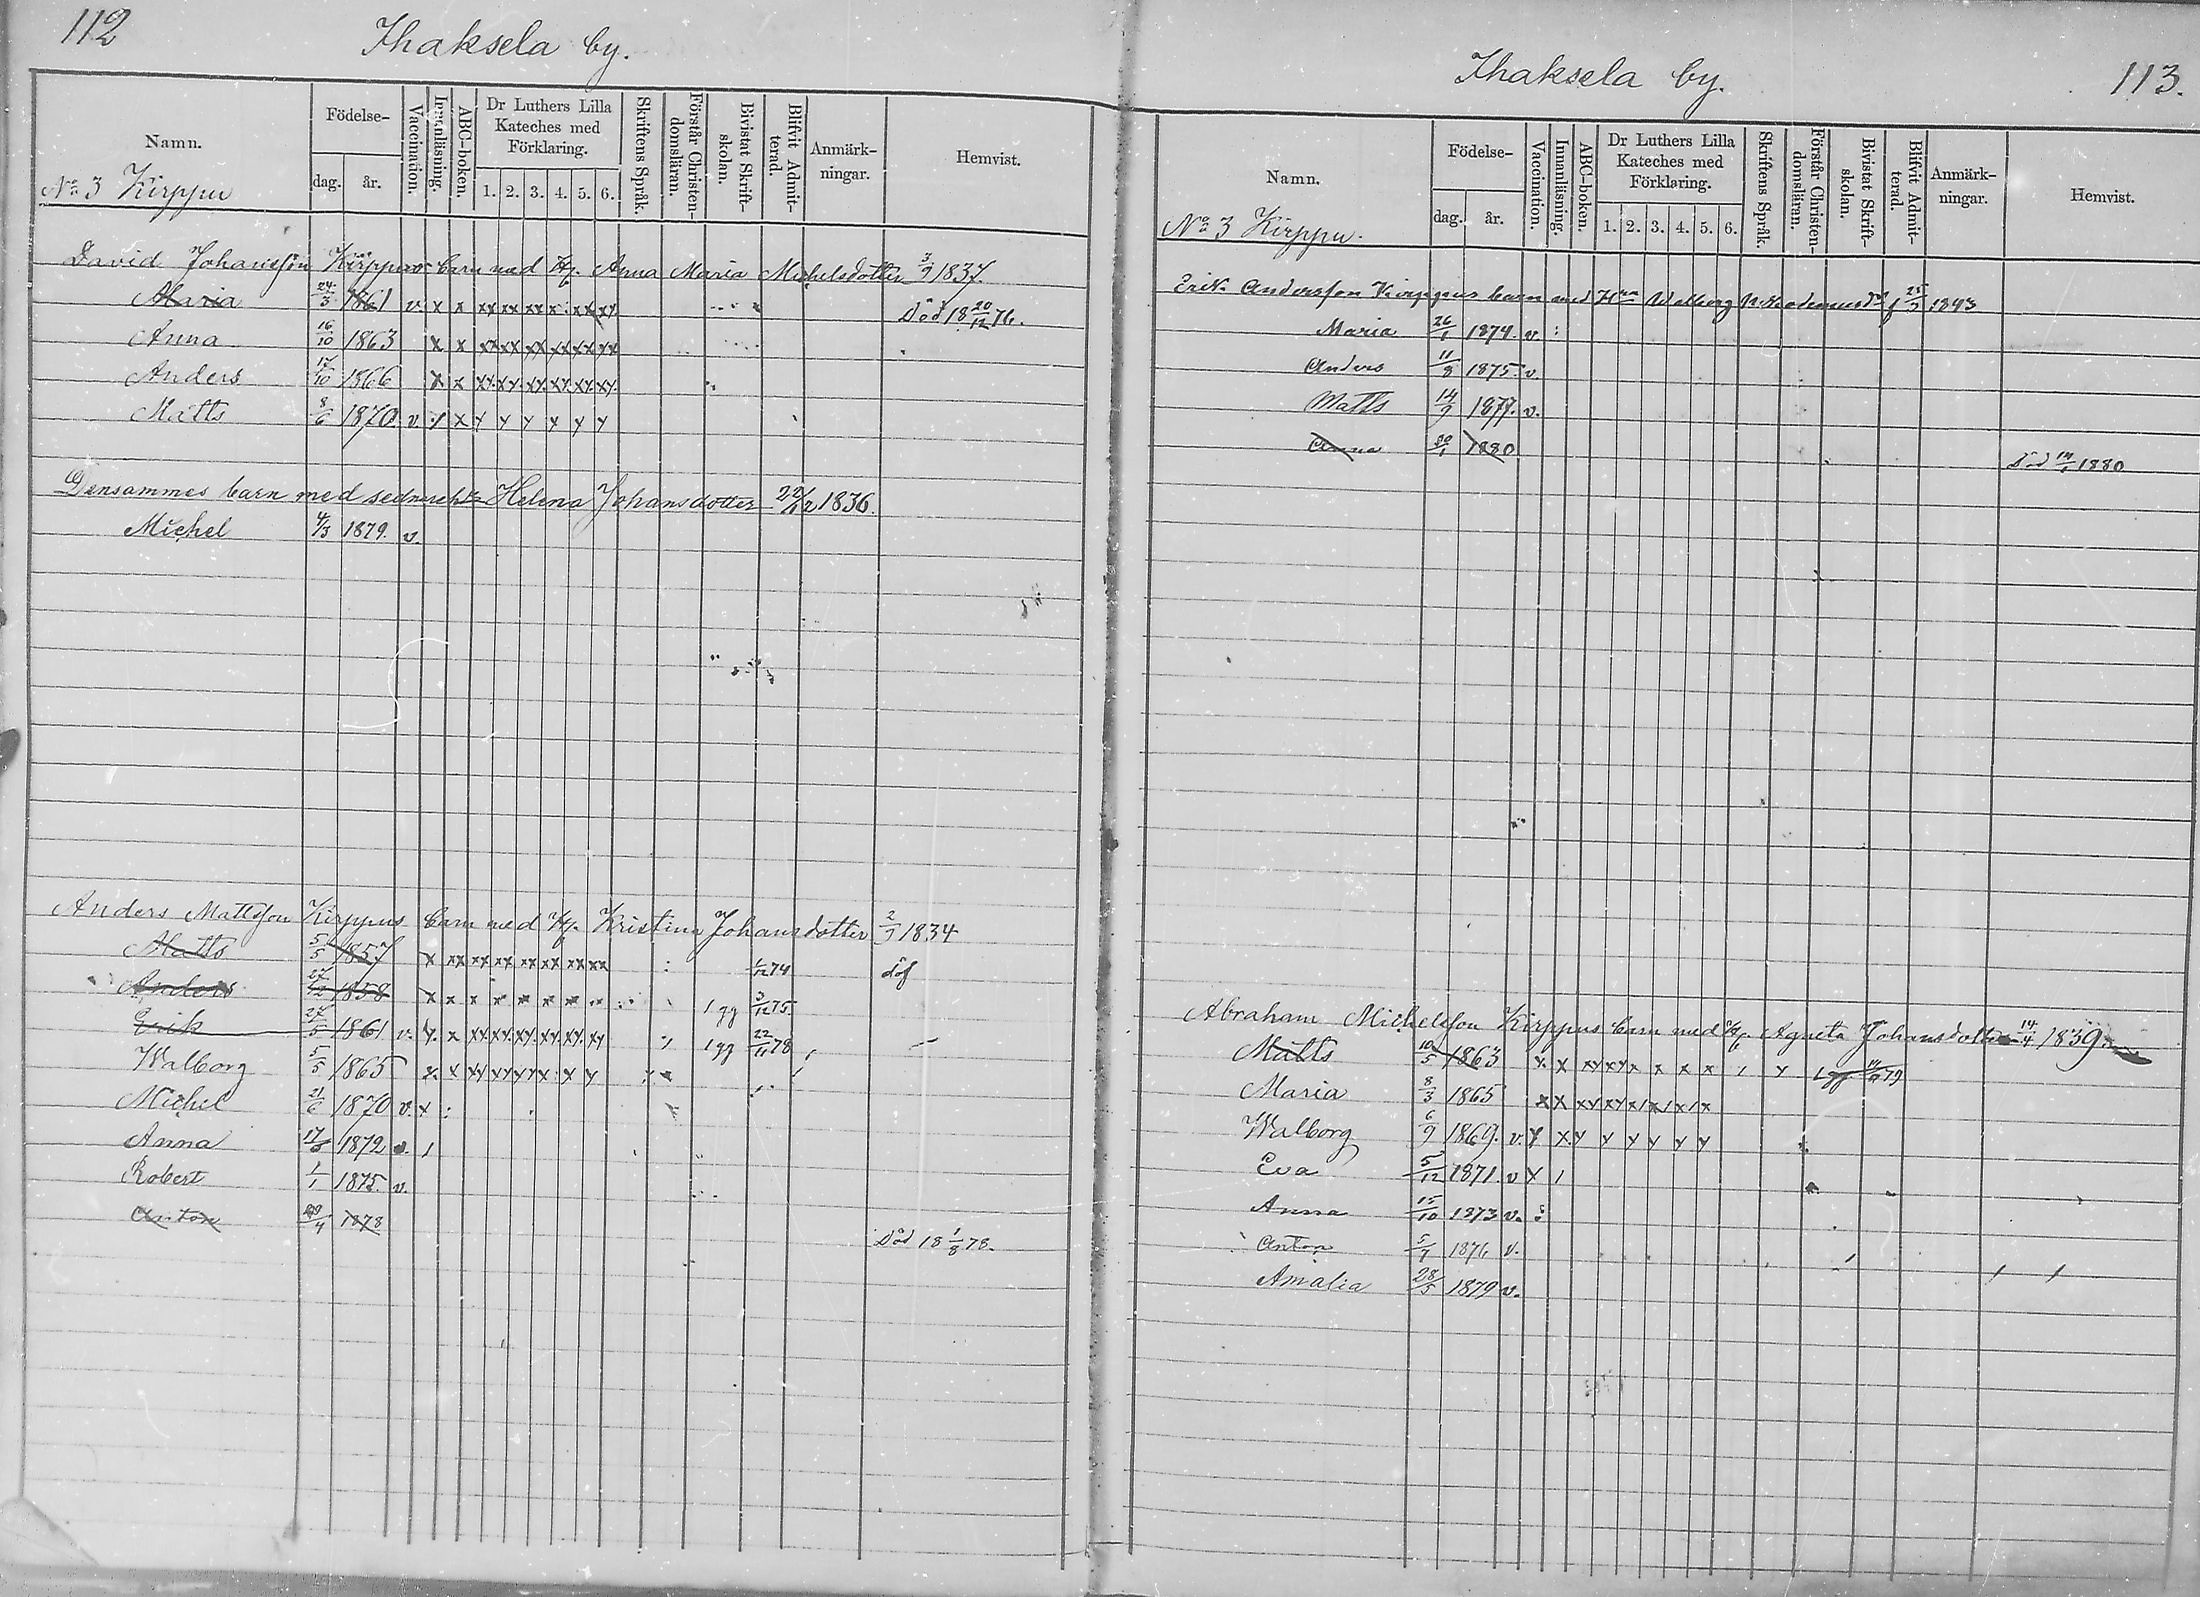 112
Ihaksela by.
Namn.
Födelse-
dag.
år.
Vaccination.
Innanläsning.
ABC-boken.
Dr Luthers Lilla
Kateches med
Förklaring.
1. 2. 3. 4. 5. 6.
Skriftens Språk.
Förstår Christen-
domsläran.
Bivistat Skrift-
skolan.
Blifvit Admit-
terad.
Anmärk-
ningar.
Hemvist.
No 3 Kirppu
David Johansson Kirppus barn med Anna Maria Michelsdotter 3/9 1837.
Maria 24/3 1861 v. x x xx xx xx x xx xx Död 18 20/12 76.
Anna 16/10 1863 x x xx xx xx xx xx xx
Anders 17/10 1866 x x xx xx xx xx xx xx
Matts 8/6 1870 v. x x x x x x x x
Densammes barn med Helena Johansdotter 22/12 1836.
Michel 4/3 1879. v.
Anders Mattsson Kirppus barn med Kristina Johansdotter 2/9 1834
Matts 5/5 1857 x xx xx xx xx xx xx xx 1/12 74 döf
Anders 27/12 1858 x x x x x x x 1 gg 3/12 75.
Erik 27/5 1861 v. x. x xx xx xx xx xx xx 1 gg 22/11 78
Walborg 5/5 1865 x x
Michel 21/6 1870 v x
Anna 1872
Robert 1/1 1875 v.
Anton 1878 Död 18 1/8 78.
Ihaksela by.
113.
Namn.
Födelse-
dag.
år.
Vaccination.
Innanläsning.
ABC-boken.
Dr Luthers Lilla
Kateches med
Förklaring.
1. 2. 3. 4. 5. 6.
Skriftens Språk.
Förstår Christen-
domsläran.
Bivistat Skrift-
skolan.
Blifvit Admit-
terad.
Anmärk-
ningar.
Hemvist.
No 3 Kirppu.
Erik Andersson Kirppus barn med Walborg 1843
Maria 26/1 1874. v.
Anders 11/8 1875. v.
Matts 14/9 1877. v.
Anna 1880 Död 1880
Abraham Michelsson Kirppus barn med Agneta Johansdotter 14/4 1839.
Matts 10/5 1863 x x
Maria 8/3 1865 x x
Walborg 6/9 1869. v. x x x x x x x x
Eva 5/12 1871. v x
Anna 15/10 1873 v.
Anton 1876 v.
Amalia 28/5 1879 v.